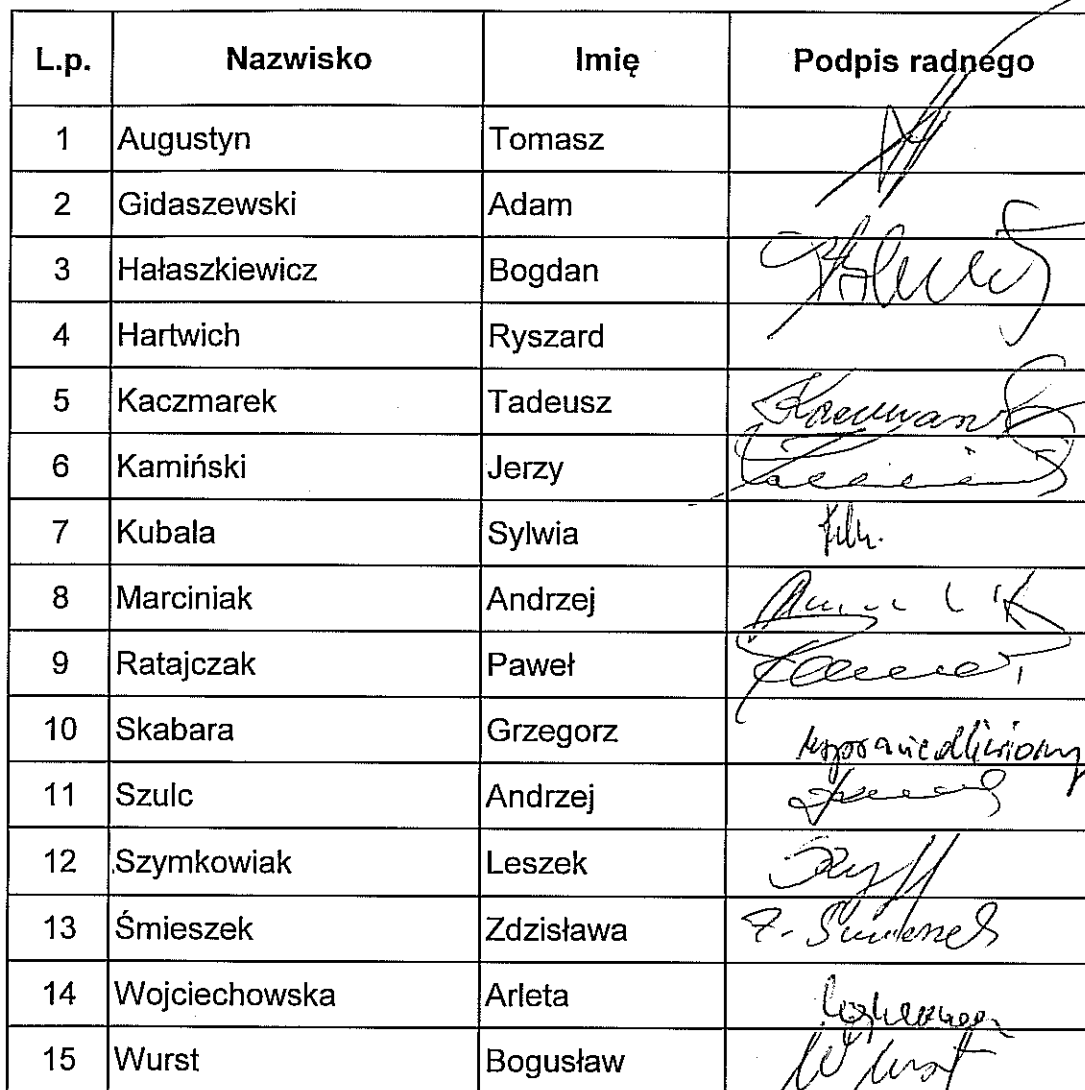 L.p. Nazwisko Imię Podpis radnego
1 Augustyn Tomasz
2 Gidaszewski Adam
3 Hałaszkiewicz Bogdan
4 Hartwich Ryszard
5 Kaczmarek Tadeusz
6 Kamiński Jerzy
7 Kubala Sylwia
8 Marciniak Andrzej
9 Ratajczak Paweł
10 Skabara Grzegorz usprawiedliwiony
11 Szulc Andrzej
12 Szymkowiak Leszek
13 Śmieszek Zdzisława Z. Śmieszek
14 Wojciechowska Arleta
15 Wurst Bogusław Wurst